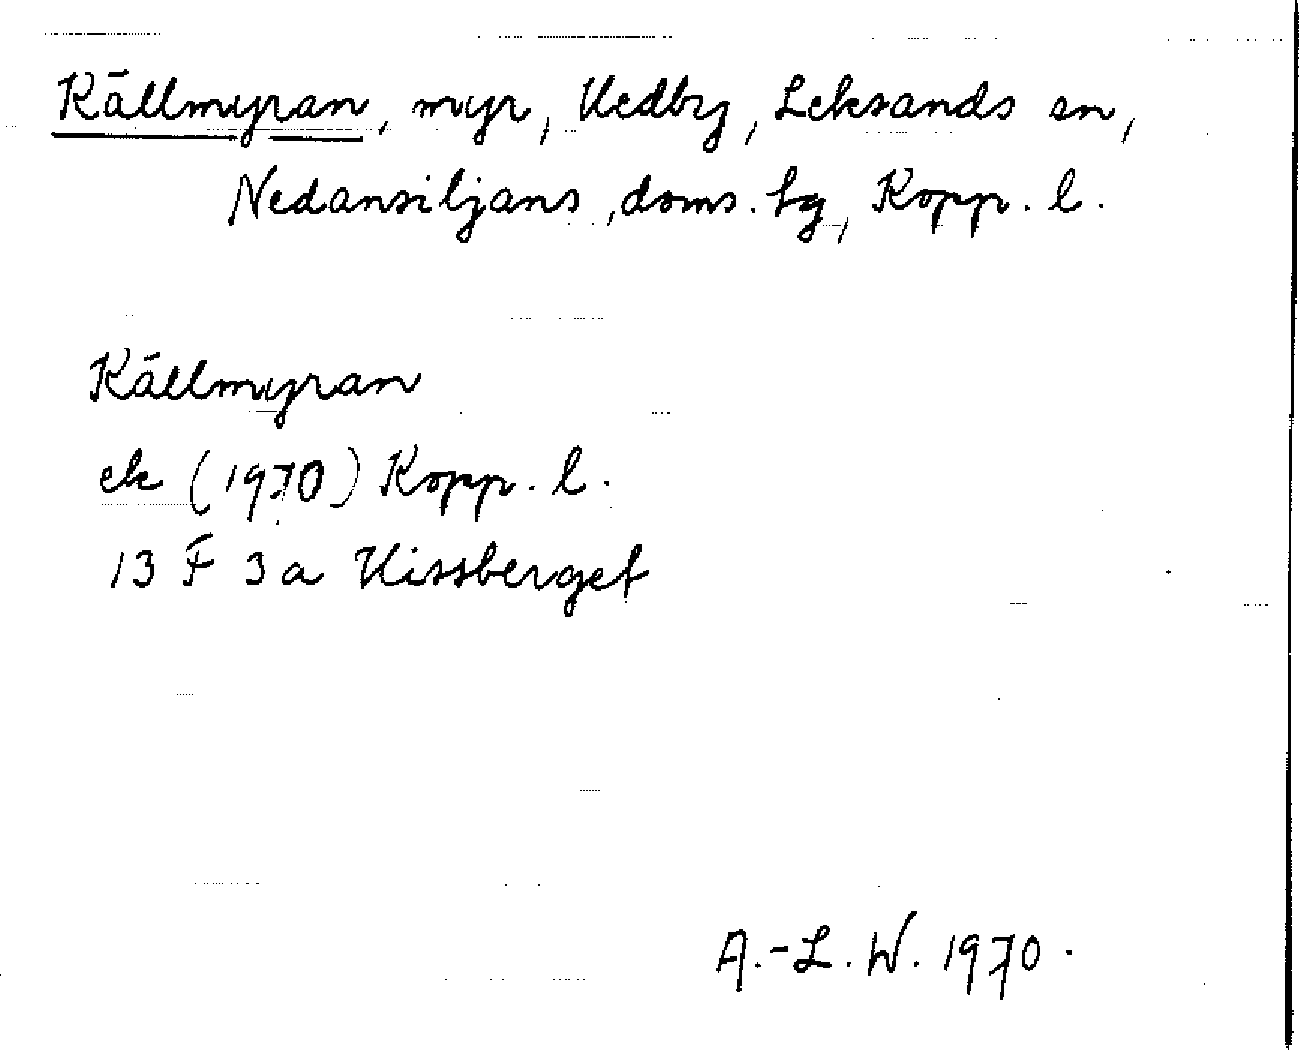 Källmyran, myr, Hedby, Leksands sn,
Nedansiljans, doms. hg, Kopp. l.
Källmyran
ek (1970) Kopp. l.
13 F 3a Hissberget
A.-L. W. 1970.